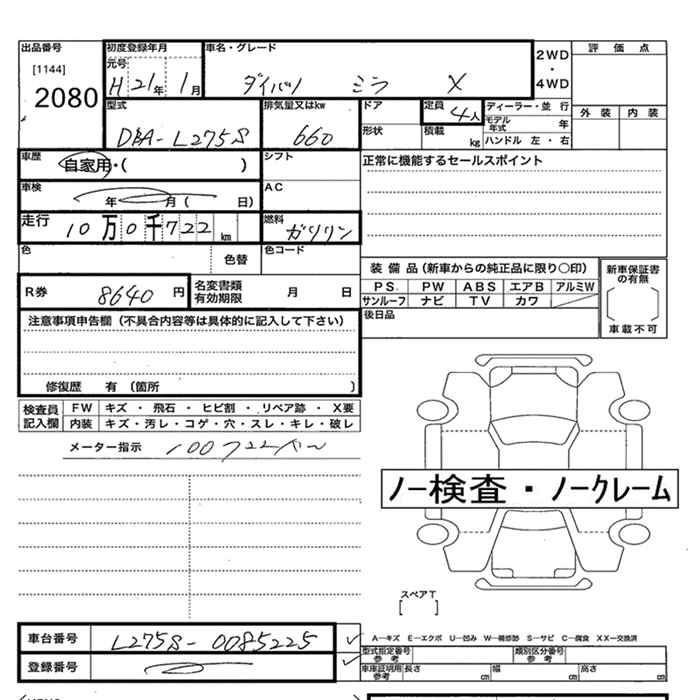 出品番号 初度登録年月 車名・グレード
[1144] 元号
2080 H 21年 1月 ダイハツ ミラ X 2WD・4WD 評価点
型式 排気量又はkw ドア 定員 4人 ディーラー・並行 外装 内装
DBA-L275S 660 形状 積載 kg モデル年式 年
ハンドル 左・右
車歴 自家用・( ) シフト 正常に機能するセールスポイント
車検 年 月( 日) AC
走行 10万0千722km 燃料 ガソリン
色 色替 色コード
装備品(新車からの純正品に限り○印) 新車保証書の有無
R券 8640円 名変書類有効期限 月 日 PS PW ABS エアB アルミW
サンルーフ ナビ TV カワ
注意事項申告欄(不具合内容等は具体的に記入して下さい) 後日品 車載不可
修復歴 有(箇所 )
検査員記入欄 FW キズ・飛石・ヒビ割・リペア跡・X要
内装 キズ・汚レ・コゲ・穴・スレ・キレ・破レ
メーター指示 100722km
ノー検査・ノークレーム
スペアT
[ ]
車台番号 L275S-0085225
A-キズ E-エクボ U-凹み W-補修跡 S-サビ C-腐食 XX-交換済
登録番号
型式指定番号 参考 類別区分番号 参考
車庫証明用 参考 長さ cm 幅 cm 高さ cm